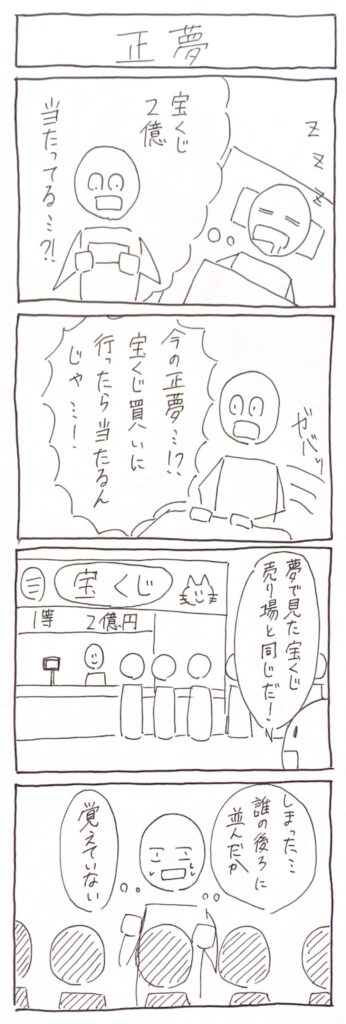 正夢
Z
Z
Z
宝くじ
2億
当たってる…?!
ガバッ
今の正夢…!?
宝くじ買いに
行ったら当たるん
じゃ…!
宝くじ
1等 2億円
夢で見た宝くじ
売り場と同じだ!
しまった…
誰の後ろに
並んだか
覚えていない